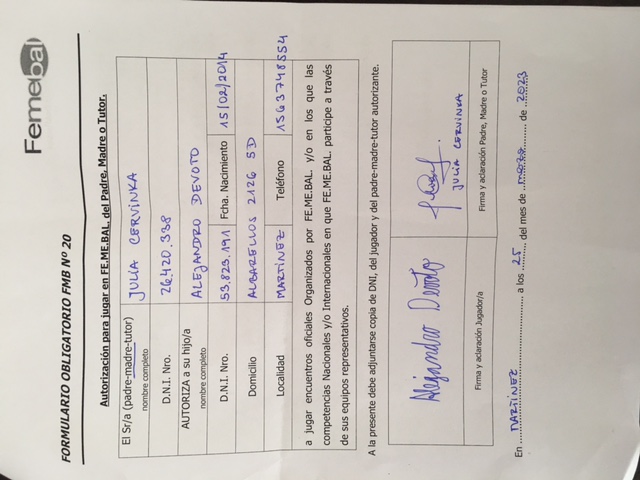 Femebal
FORMULARIO OBLIGATORIO FMB Nº 20
Autorización para jugar en FE.ME.BAL. del Padre, Madre o Tutor.
El Sr/a (padre-madre-tutor) JULIA CERVINKA
nombre completo
D.N.I. Nro. 26.420.338
AUTORIZA a su hijo/a ALEJANDRO DEVOTO
nombre completo
D.N.I. Nro. 53.823.191 Fcha. Nacimiento 15/02/2014
Domicilio ALBARELLOS 2126 5D
Localidad MARTÍNEZ Teléfono 1563748554
a jugar encuentros oficiales Organizados por FE.ME.BAL. y/o en los que las
competencias Nacionales y/o Internacionales en que FE.ME.BAL. participe a través
de sus equipos representativos.
A la presente debe adjuntarse copia de DNI, del jugador y del padre-madre-tutor autorizante.
Alejandro Devoto
JULIA CERVINKA
Firma y aclaración Jugador/a Firma y aclaración Padre, Madre o Tutor
En MARTÍNEZ a los 25 del mes de marzo de 2023